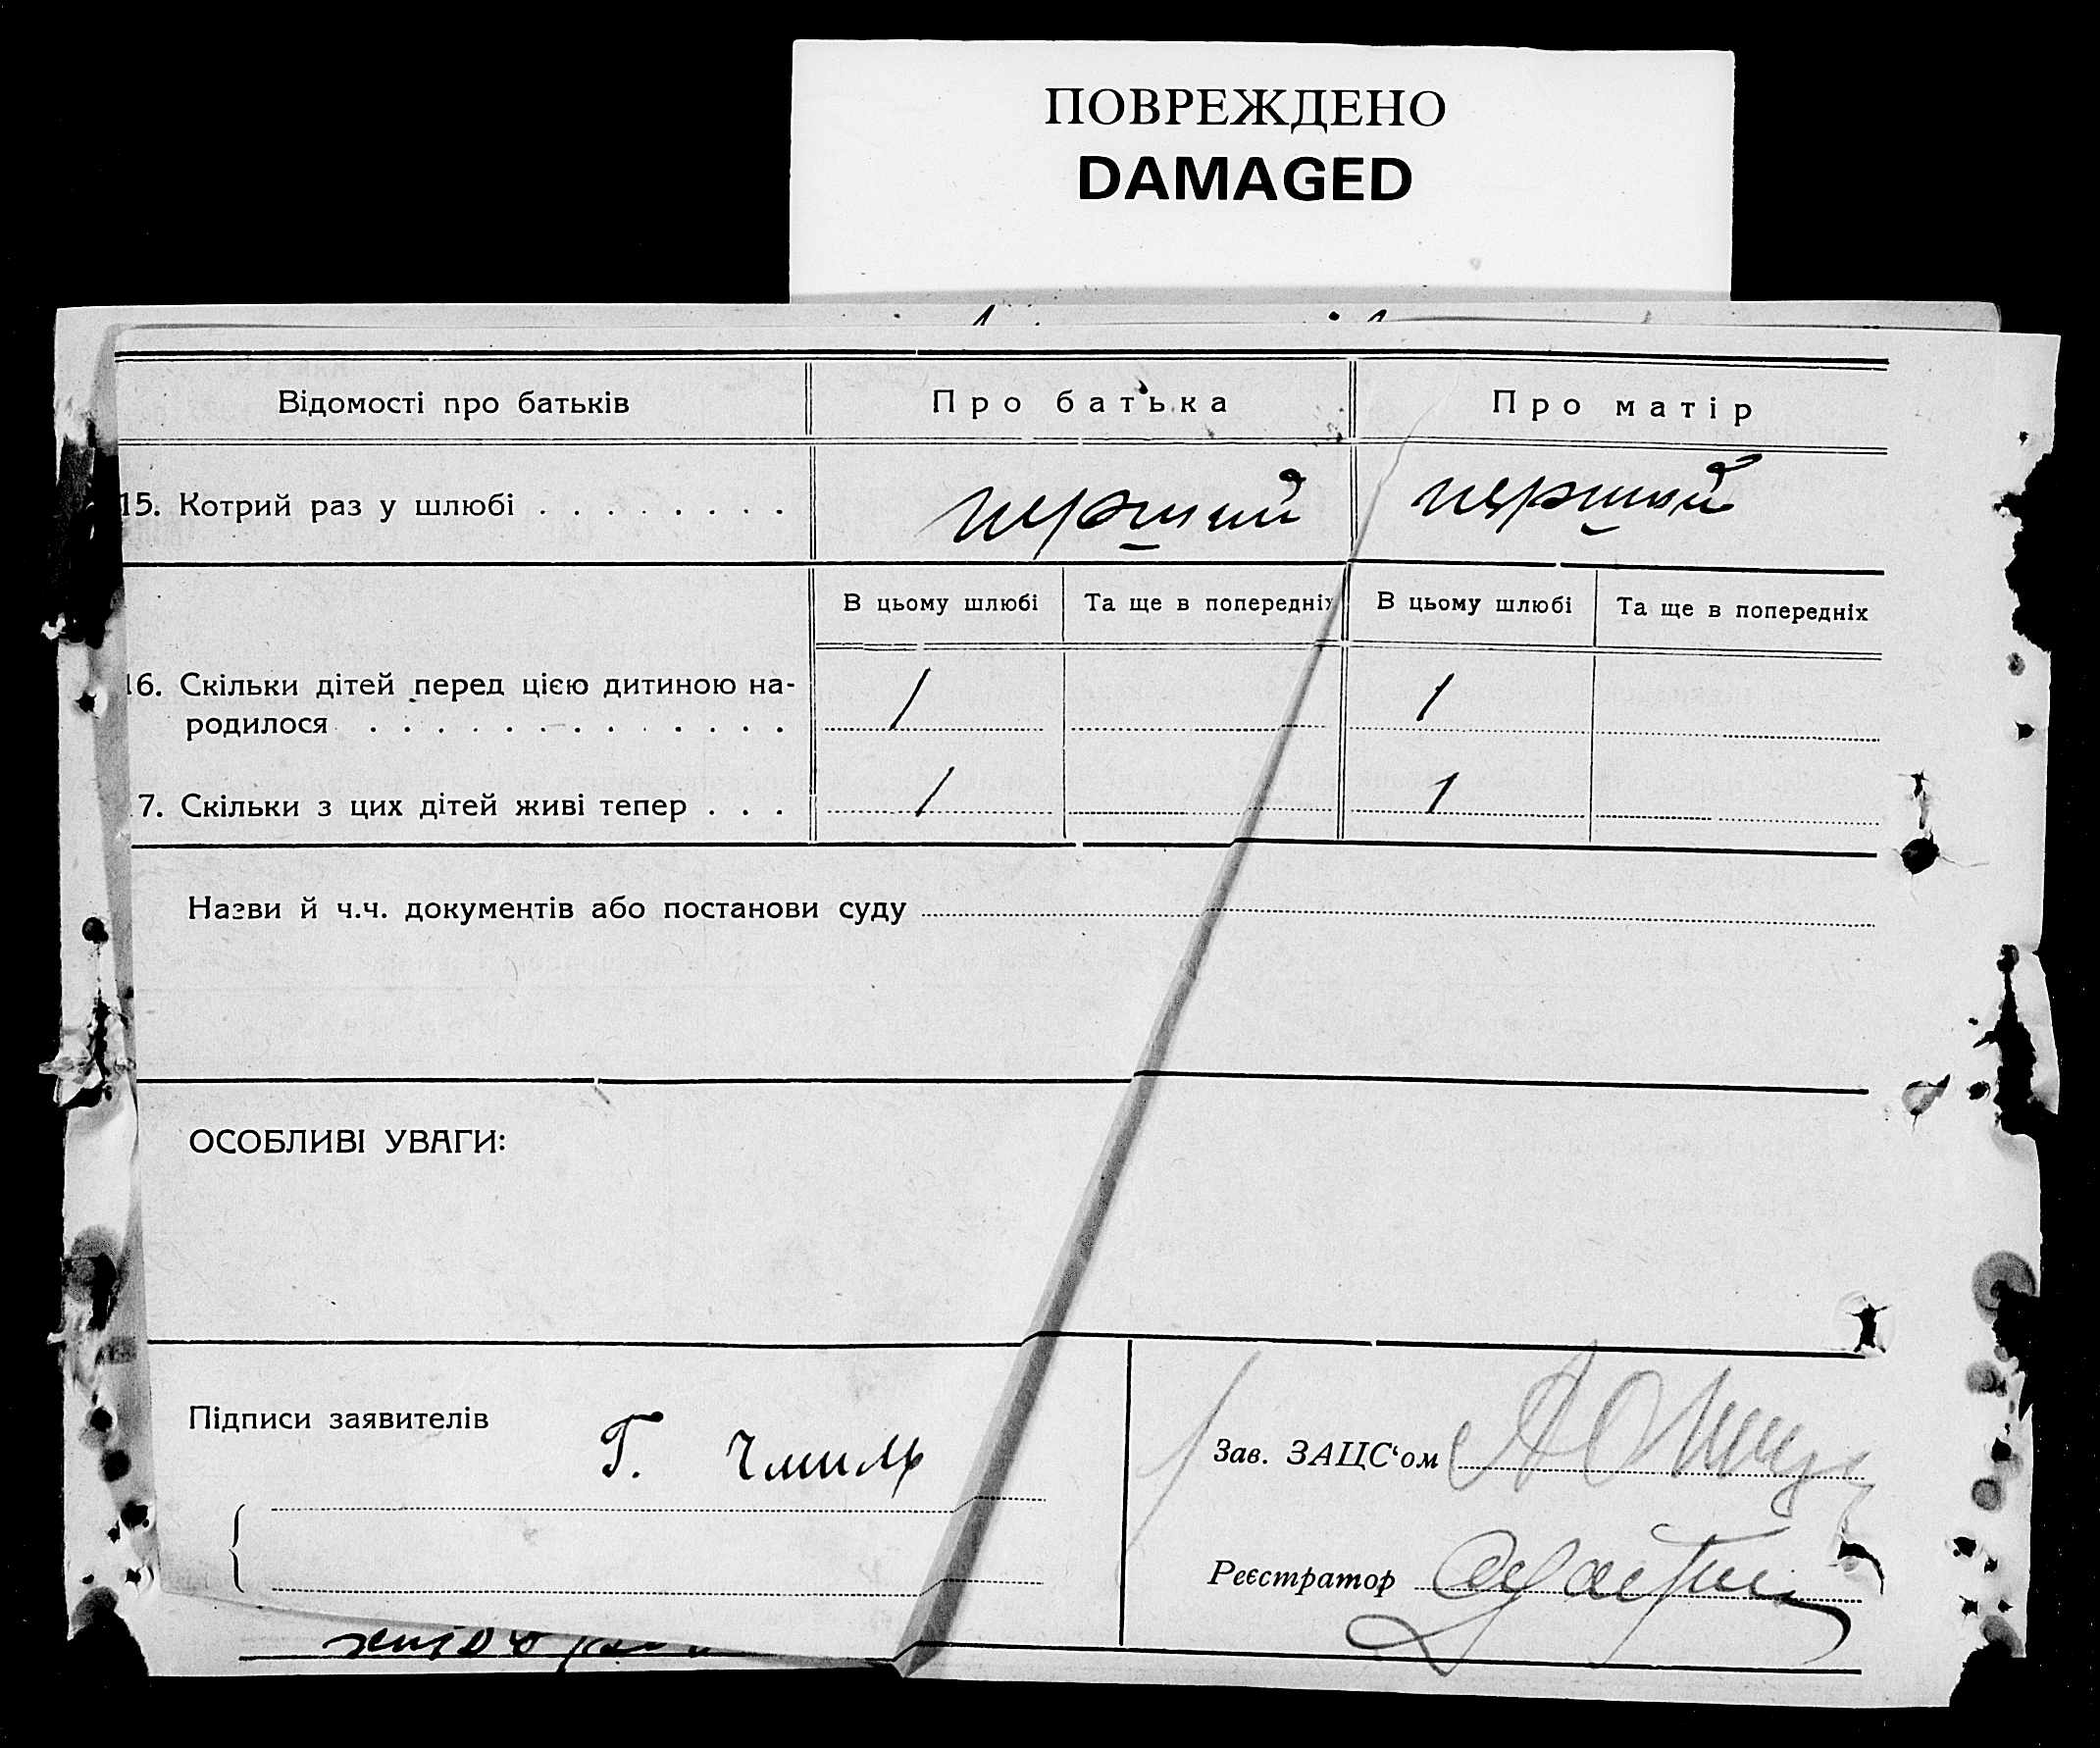 ПОВРЕЖДЕНО
DAMAGED
Відомості про батьків
Про батька
Про матір
15. Котрий раз у шлюбі . . . . . . . .
перший
перший
В цьому шлюбі
Та ще в попередніх
В цьому шлюбі
Та ще в попередніх
16. Скільки дітей перед цією дитиною на-
родилося . . . . . . . . . . . . .
1
1
7. Скільки з цих дітей живі тепер . . .
1
1
Назви й ч.ч. документів або постанови суду
ОСОБЛИВІ УВАГИ:
Підписи заявителів
Г. Чмиль
Зав. ЗАЦС‘ом
Реєстратор